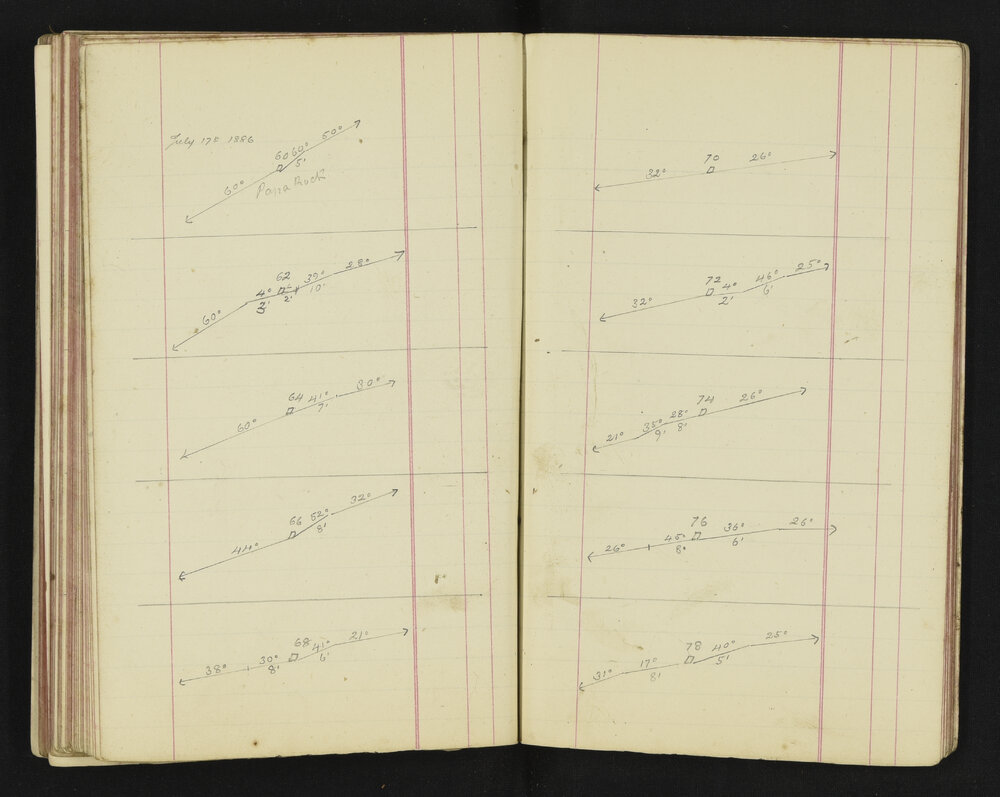 July 17th 1886
60 69° 50°
5'
60°
Papa Rock
62 39° 28°
4° 2' 10'
3'
60°
64 41° 30°
7'
60°
66 52° 32°
8'
44°
68 41° 21°
38° 30° 6'
8'
70 26°
32°
72 4° 46° 25°
2' 6'
32°
74 26°
21° 35° 28°
9' 8'
76 36° 26°
26° 45° 6'
8°
78 40° 25°
31° 17° 5'
8'